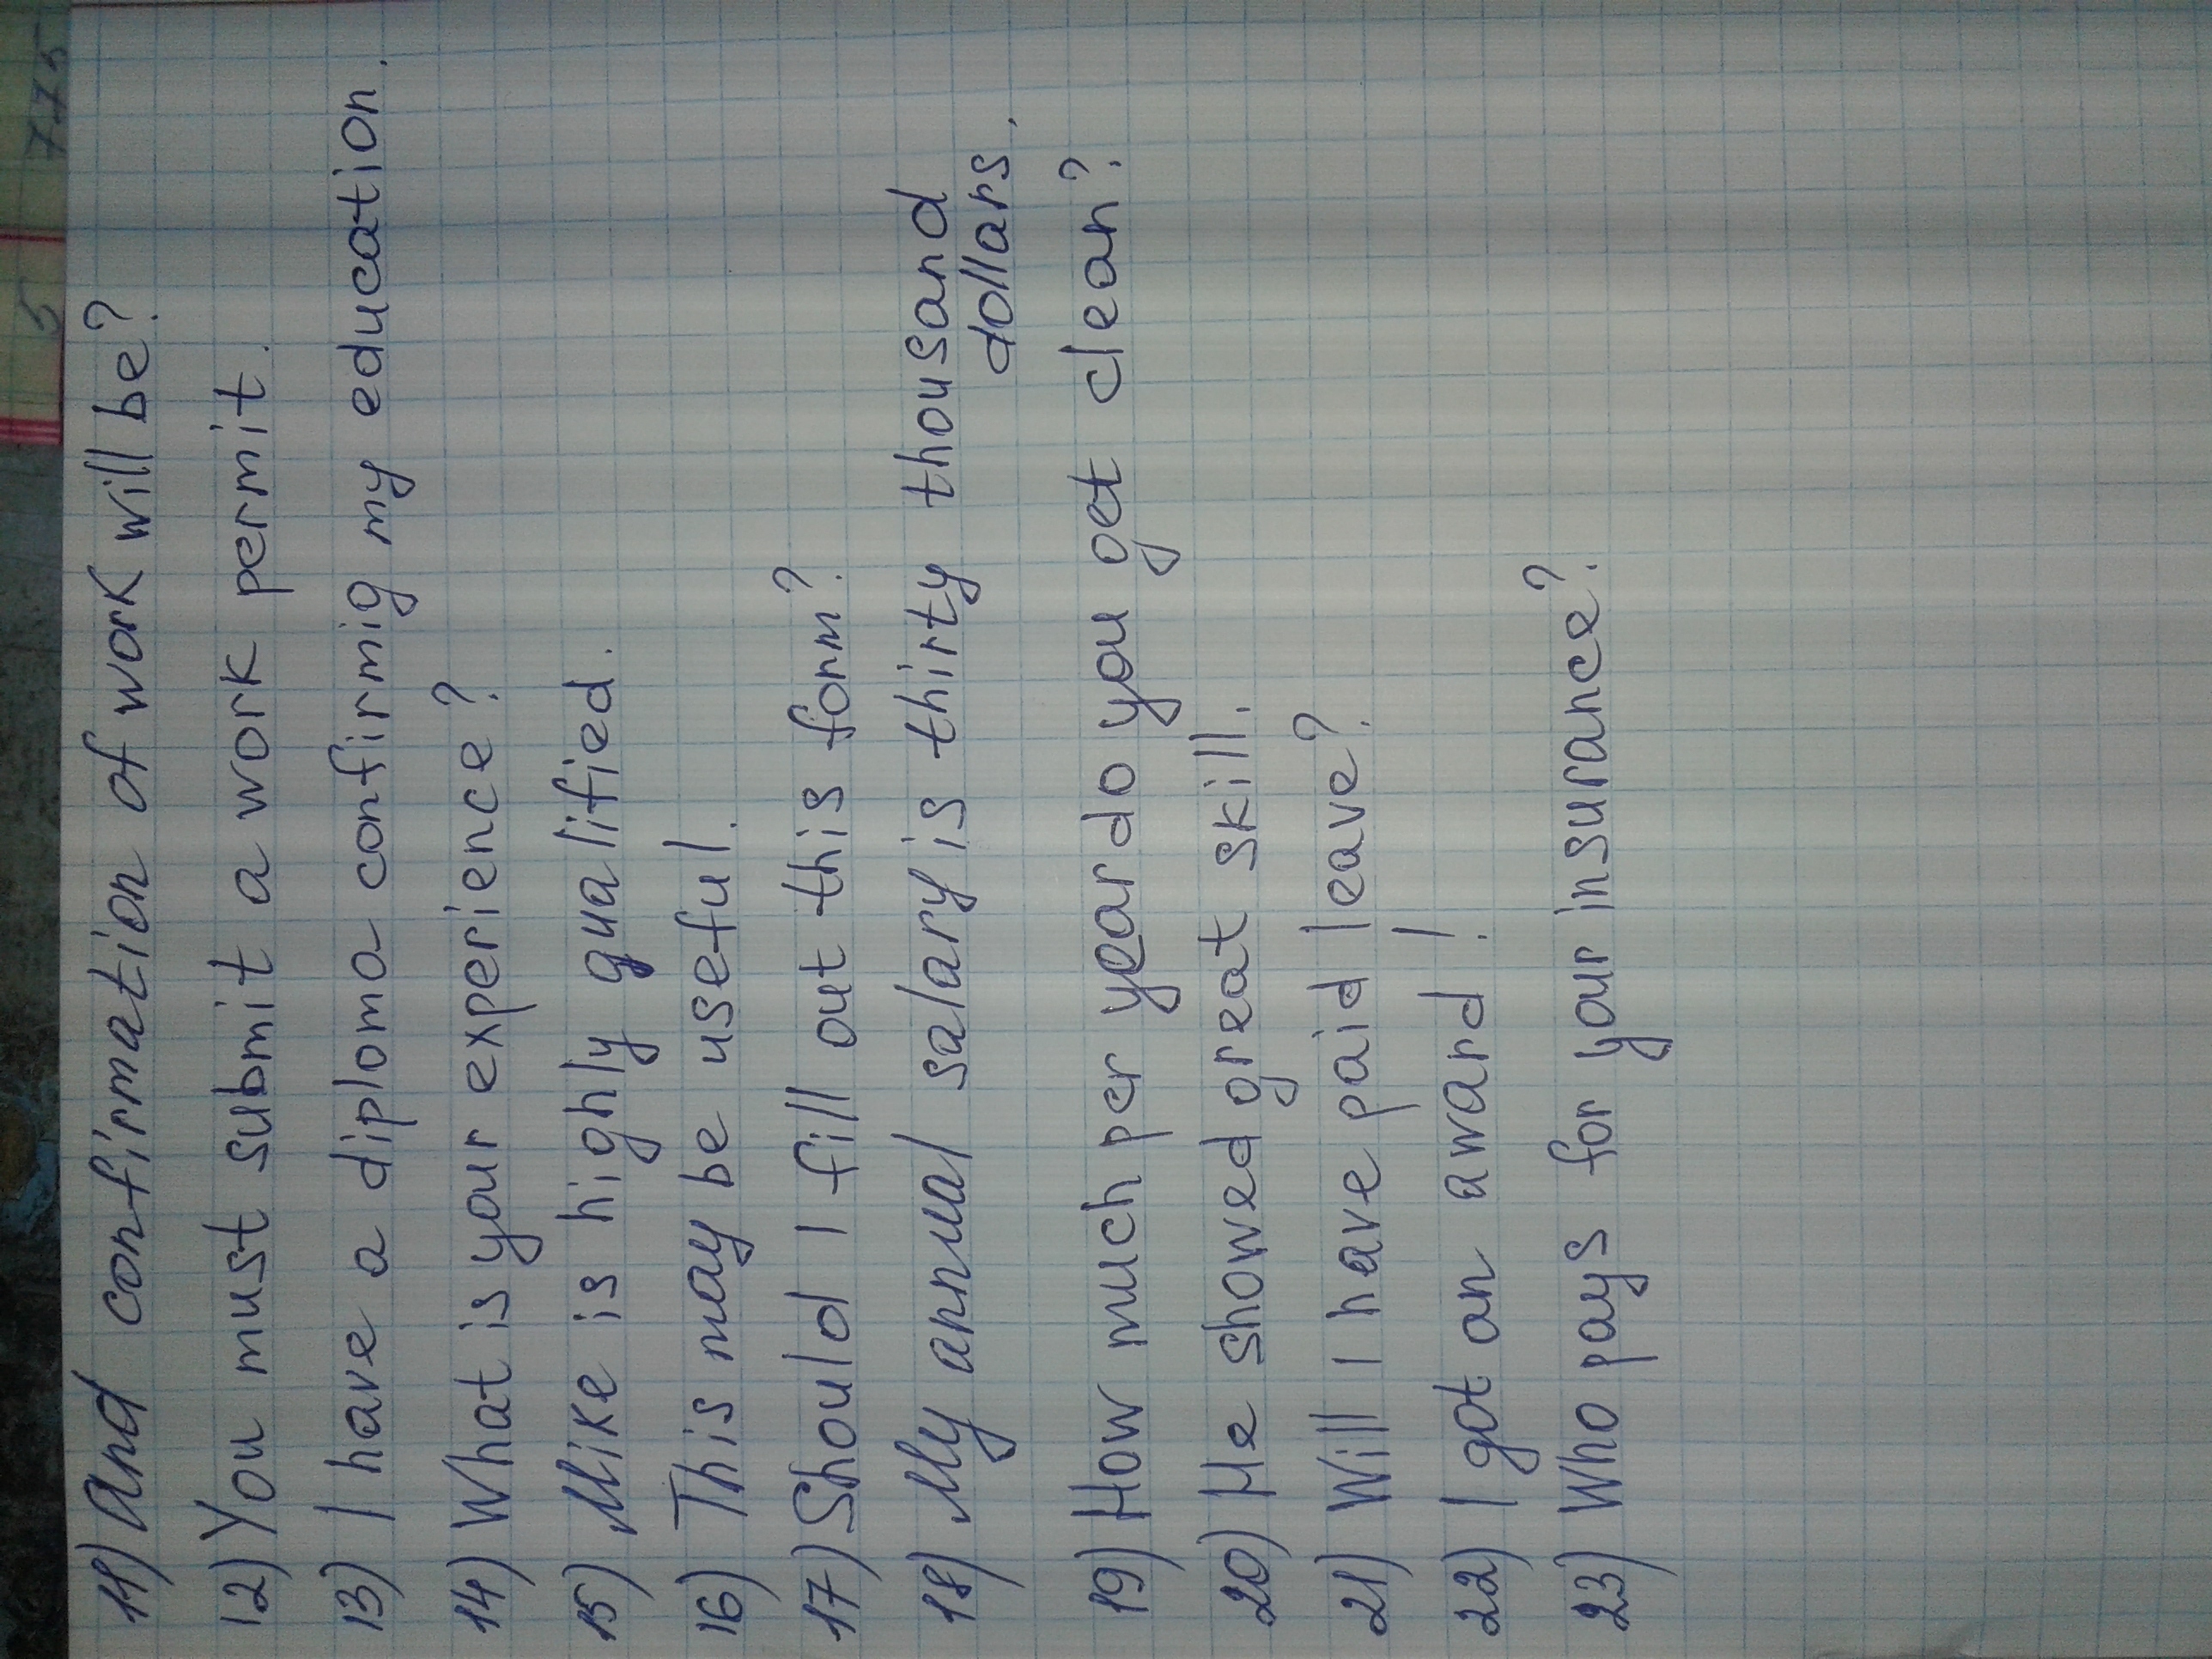 11) And confirmation of work will be?
12) You must submit a work permit.
13) I have a diploma confirmig my education.
14) What is your experience?
15) Mike is highly qualified.
16) This may be useful.
17) Should I fill out this form?
18) My annual salary is thirty thousand
dollars.
19) How much per year do you get clean?
20) He showed great skill.
21) Will I have paid leave?
22) I got an award!
23) Who pays for your insurance?